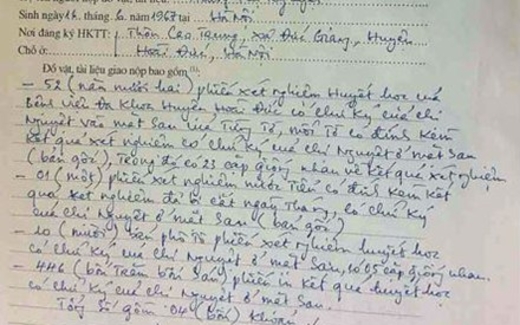 Sinh ngày 14 tháng 6 năm 1967 tại Hà Nội
Nơi đăng ký HKTT: Thôn Cao Trung, xã Đức Giang, Huyện
Hoài Đức, Hà Nội
Chỗ ở:
Đồ vật, tài liệu giao nộp bao gồm (1):
- 52 (năm mươi hai) phiếu xét nghiệm Huyết học của
Bệnh viện Đa Khoa Huyện Hoài Đức có chữ ký của chị
Nguyệt vào mặt sau của từng tờ, mỗi tờ có đính kèm
kết quả xét nghiệm có chữ ký của chị Nguyệt ở mặt sau
(bản gốc), Trong đó có 23 cặp giống nhau về kết quả xét nghiệm
- 01 (một) phiếu xét nghiệm nước tiểu có đính kèm kết
quả xét nghiệm đã bị cắt ngày tháng, có chữ ký
của chị Nguyệt ở mặt sau (bản gốc)
- 10 (mười) bản phô tô phiếu xét nghiệm huyết học
có chữ ký của chị Nguyệt ở mặt sau, có 05 cặp giống nhau.
- 446 (bốn trăm bốn sáu) phiếu in kết quả huyết học
có chữ ký của chị Nguyệt ở mặt sau.
Tổng số gồm 04 (bốn) khoản